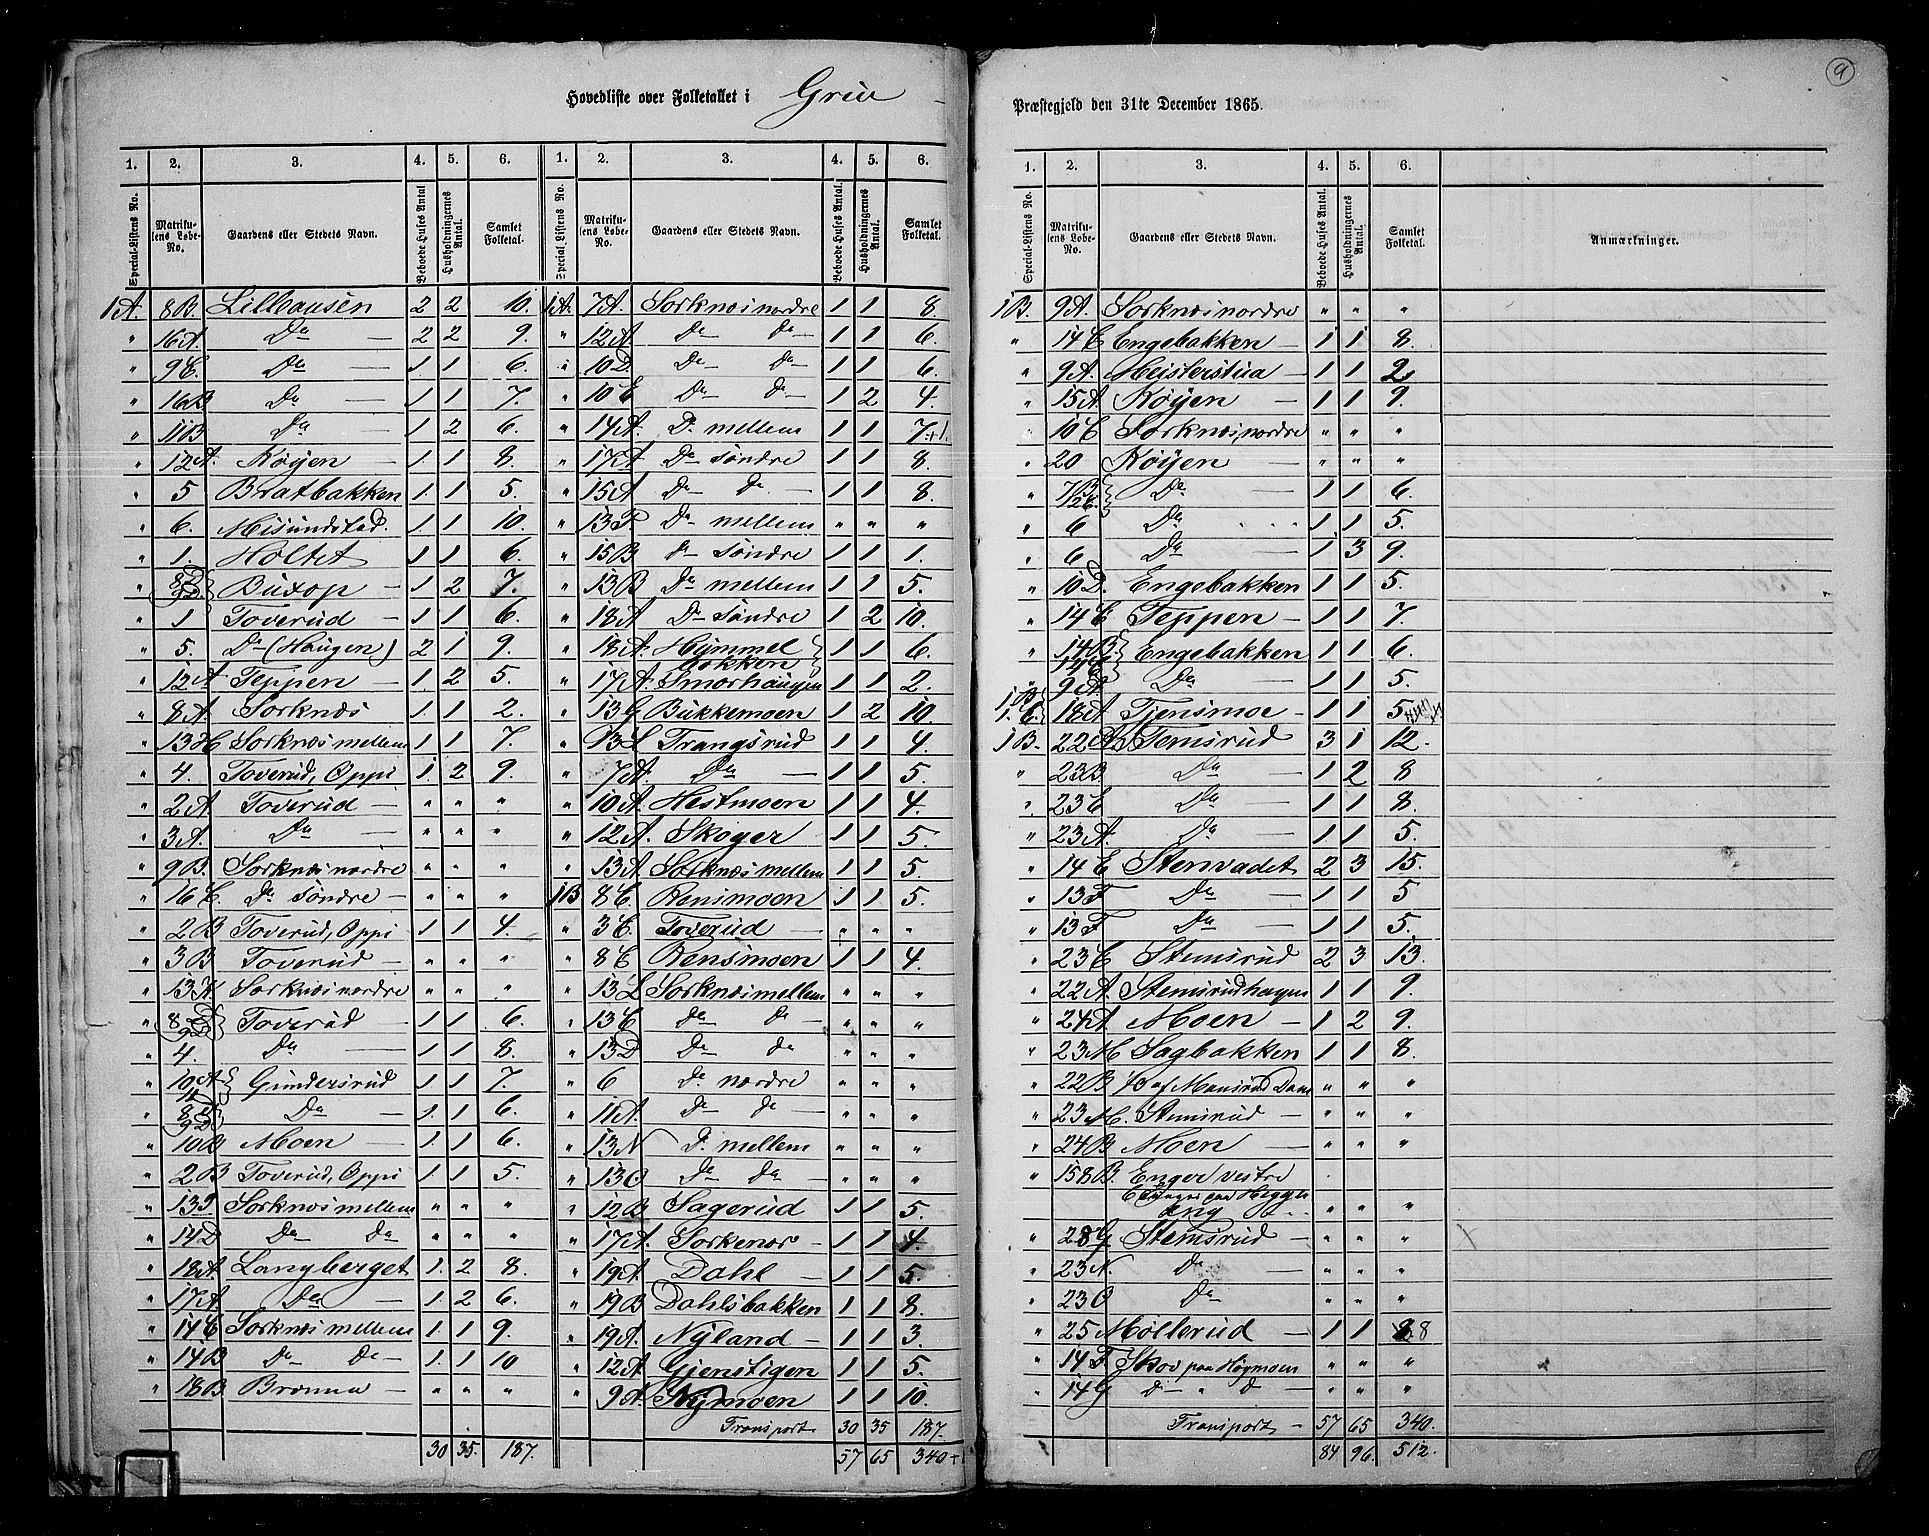 Hovedliste over Folketallet i Grue
1. 2. 3. 4. 5. 6. 1. 2. 3. 4. 5. 6.
Special-Listens No. Matrikulens Løbe-No. Gaardens eller Stedets Navn. Beboede Huses Antal Husholdningernes Antal. Samlet Folketal. Special-Listens No. Matrikulens Løbe-No. Gaardens eller Stedets Navn. Beboede Huses Antal. Husholdningernes Antal. Samlet Folketal.
1A. 8B. Lillhausen 2 2 10. 1A. 7A. Sorknæs nordre 1 1 8.
" 16A. Do — 2 2 9. " 12A Do Do — 1 1 6.
" 9C. Do — 1 1 6. " 10D Do Do 1 1 6.
" 16B Do — 1 1 7. " 10E Do Do — 1 2 4.
" 11B Do — 1 2 6. " 14A. Do mellem 1 1 7.+1.
" 12A. Køyen — 1. 1 8. " 17A Do søndre 1 1 8.
" 5 Bratbakken 1. 1 5. " 15A Do Do — 1 1 8.
" 6. Misundstad. 1. 1 10. " 13P. Do mellem " " "
" 1. Holtet 1 1 6. " 15B Do søndre 1 1 1.
" Buxop — 1 2 7. " 13B Do mellem 1 1 5.
" 1 Toverud — 1 1 6. " 18A Do søndre 1 2 10.
" 5. Do (Haugen) 2 1 9. " 18A. Hymmelbakken 1 1 6.
" 12A Teppen — 1. 2 5. " 17A. Smørhaugen 1 1 2.
" 8A. Sorknæs 1. 1 2. " 13G Bukkemoen 1 2 10.
" 13H Sorknæs mellem 1 1 7. " 13L Trangsrud 1 1 4.
" 4. Toverud, Oppi 1. 2 9. " 7A. Do — 1 1 5.
" 2A Toverud — " " " " 10A. Hestmoen 1 1 4.
" 3A. Do — " " " " 12A. Skøyer 1 1 5.
" 9B. Sorknæs nordre " " " " 13A. Sorknæs mellem 1 1 5.
" 16C. Do søndre — " " " 1B 8C Rensmoen 1 1 5.
" 2B Toverud, Oppi 1 1 4. " 3C. Toverud — " " "
" 3B Toverud — " " " " 8C Rensmoen 1 1 4.
" 13K Sorknæs nordre " " " " 13L Sorknæs mellem " " "
" Toverud — 1 1 6. " 13C Do Do — " " "
" 4. Do — 1 1 8. " 13D Do Do " " "
" 10A Gundersrud 1 1 7. " 6 Do nordre " " "
" Do — 1. 1 6. " 11A. Do Do — " " "
" 10B Moen — 1. 1 6. " 13N Do mellem " " "
" 2B Toverud, Oppi 1 1 5. " 13O Do Do — " " "
" Sorknæs mellem " " " " 12B Sagerud 1 1 5.
" 14D Do Do " " " " 17A. Sorkenor — 1 1 4.
" 18A Langberget 1. 2 8. " 19A. Dahl — 1 1 5.
" 17A. Do — 1. 2 6. " 19B Dahlsbakken 1 1 8.
" 14C Sorknæs mellem 1. 1 9. " 19A. Nyland — 1 1 3.
" 14B Do Do — 1. 1 10 " 12A Gjenstigen 1 1 5.
" 18B Brønna — " " " " 9A. Nymoen 1 1 10.
Transport 30 35 187.
30 35. 187. 57 65 340+1
9
Præstegjeld den 31te December 1865.
1. 2. 3. 4. 5. 6.
Special-Listens No. Matrikulens Løbe-No. Gaardens eller Stedets Navn. Beboede Huses Antal. Husholdningernes Antal. Samlet Folketal. Anmærkninger.
1B. 9A. Sorknæs nordre " " "
" 14C Engebakken — 1 1 8.
" 9A. Mejsterstua — 1 1 2.
" 15A. Køyen — 1 1 9.
" 10C Sorknæs nordre " " "
" 20 Køyen — " " "
" 7B 12C. Do 1 1 6.
" 6 Do 1 1 5.
" 6 Do 1 3 9.
" 10D. Engebakken 1 1 5.
" 14C Teppen — 1 1 7.
" 14B 14C Engebakken 1 1 6.
" 9A. Do — 1 1 5.
1B 1C. 18A Tjensmoe — 1 1 5
1B. 22A Stemsrud 3 1 12.
" 23B Do 1 2 8
" 23C Do 1 1 8.
" 23A. Do 1 1 5.
" 14E Stenvadet 2 3 15.
" 13F Do 1 1 5
" 13F Do — 1 1 5.
" 23C Stemsrud 2 3 13.
" 22A. Stemsrudhagen 1 1 9.
" 24A Moen — 1 2 9.
" 23M Sagbakken 1 1 8.
" 22B af Mansrud Dam " " "
" 23M. Stemsrud — " " "
" 24B Moen — " " "
" 158B. Enger vestre
Enger paa Heggen
Eng " " "
" 28G Stemsrud — " " "
" 23N. Do — " " "
" 23O Do " " "
" 25 Møllerud — 1 1 8
" 14F Skov paa Høgmoen " " "
" 14G D — " D — " " "
Transport — 57 65 340.
84 96. 512.